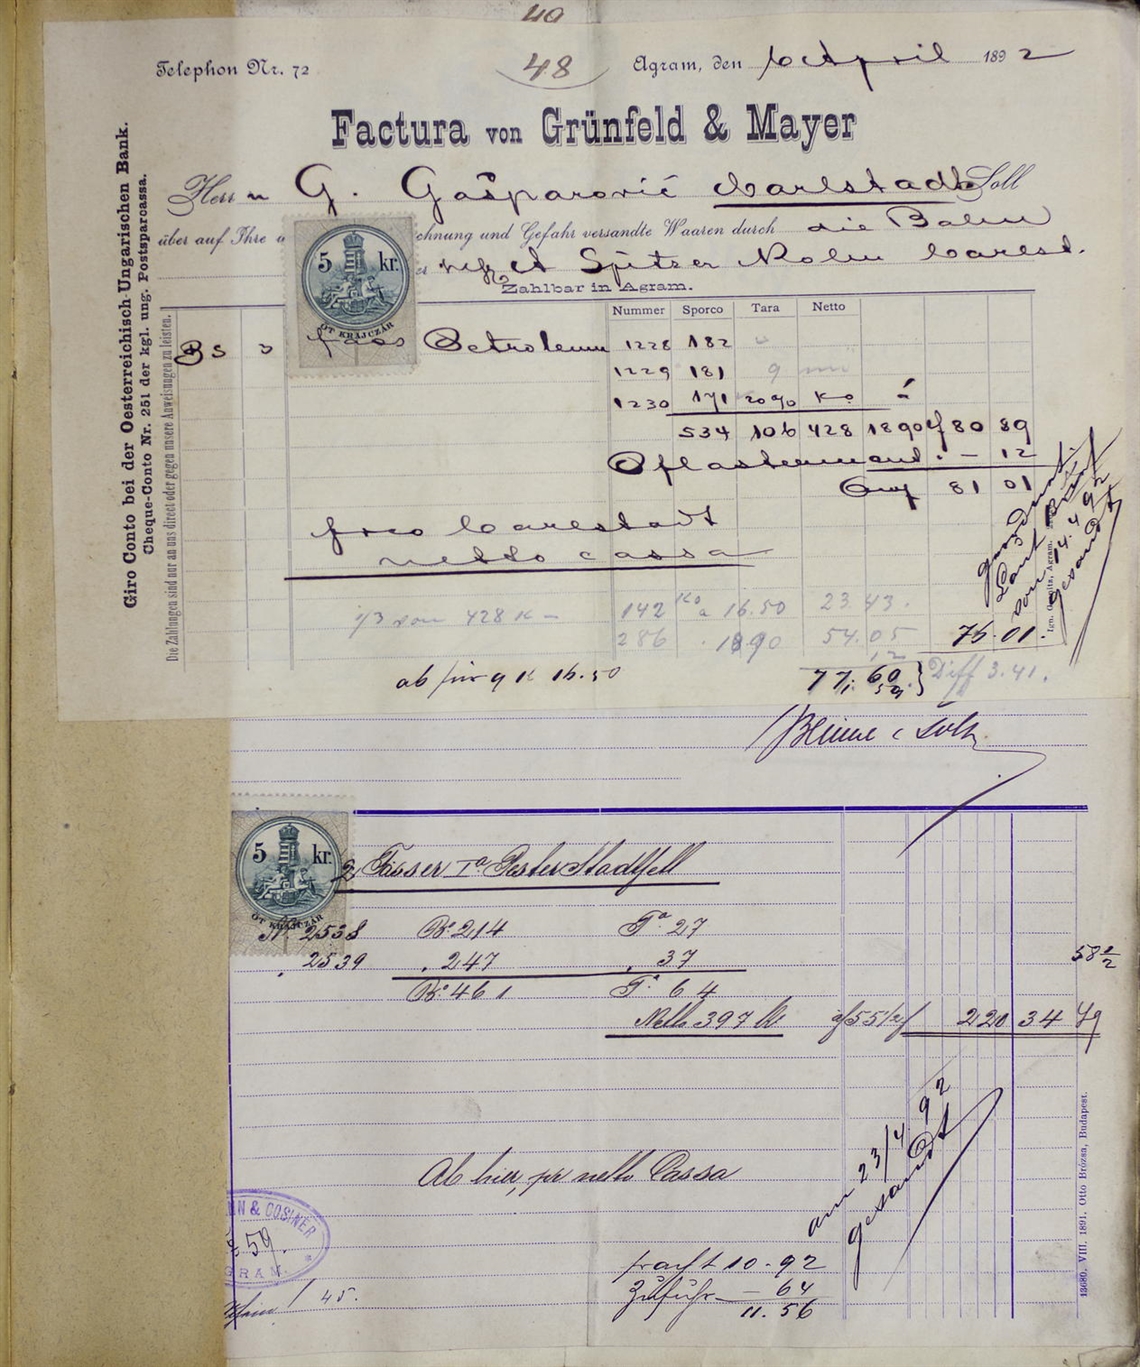 40
48
Telephon Nr. 72
Agram, den 6 April 1892
Factura von Grünfeld & Mayer
Herrn G. Gašparović Carlstadt Soll
über auf Ihre chnung und Gefahr versandte Waaren durch die Bahn
A Spitzer Rolm Carlst.
Zahlbar in Agram.
Giro Conto bei der Oesterreichisch-Ungarischen Bank.
Cheque-Conto Nr. 251 der kgl. ung. Postsparcassa.
Die Zahlungen sind nur an uns direct oder gegen unsere Anweisungen zu leisten.
5 kr.
ÖT KRAJCZÁR
Nummer Sporco Tara Netto
3 fass Petroleum 1228 182
1229 181
1230 171 20% Ko
534 106 428 1890 80 89
Pflastermaut - 12
81 01
frco Carlstadt
netto cassa
1/3 von 428 K - 142 Ko a 16.50 23.43.
286 . 1890 54.05
76.01.
12
ab für 9 K 16.50 77.60 } Diff 3.41.
Laut
von 14.4 92
gesandt
5 kr.
ÖT KRAJCZÁR
2 Fässer Ia Pester Stadtfett
No 2538 Bo 214 Ta 27
. 2539 . 247 . 37
Bo 461 Ta 64
58 1/2
Netto 397 K 220 34
Ab hier, per netto Cassa
am 23/4 92
gesandt
NN & COSINER
59.
GRAM.
45.
fracht 10.92
Zufuhr - 64
11.56
13680. VIII. 1891. Otto Brózsa, Budapest.